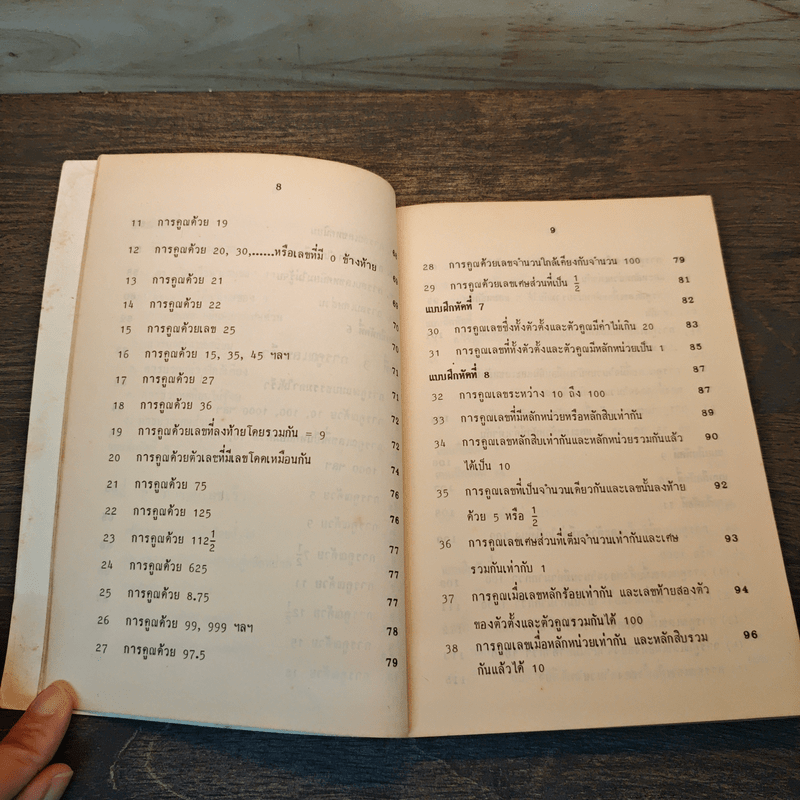 8
11 การคูณด้วย 19
12 การคูณด้วย 20, 30,......หรือเลขที่มี 0 ข้างท้าย 68
13 การคูณด้วย 21 69
14 การคูณด้วย 22 70
15 การคูณด้วยเลข 25 70
16 การคูณด้วย 15, 35, 45 ฯลฯ 71
17 การคูณด้วย 27 71
18 การคูณด้วย 36 72
19 การคูณด้วยเลขที่ลงท้ายโดยรวมกัน = 9 72
20 การคูณด้วยตัวเลขที่มีเลขโดดเหมือนกัน 74
21 การคูณด้วย 75 76
22 การคูณด้วย 125 76
23 การคูณด้วย 112½ 77
24 การคูณด้วย 625 77
25 การคูณด้วย 8.75 77
26 การคูณด้วย 99, 999 ฯลฯ 78
27 การคูณด้วย 97.5 79
9
28 การคูณด้วยเลขจำนวนใกล้เคียงกับจำนวน 100 79
29 การคูณด้วยเลขเศษส่วนที่เป็น ½ 81
แบบฝึกหัดที่ 7 82
30 การคูณเลขซึ่งทั้งตัวตั้งและตัวคูณมีค่าไม่เกิน 20 83
31 การคูณเลขที่ทั้งตัวตั้งและตัวคูณมีหลักหน่วยเป็น 1 85
แบบฝึกหัดที่ 8 87
32 การคูณเลขระหว่าง 10 ถึง 100 87
33 การคูณเลขที่มีหลักหน่วยหรือหลักสิบเท่ากัน 89
34 การคูณเลขหลักสิบเท่ากันและหลักหน่วยรวมกันแล้ว 90
ได้เป็น 10
35 การคูณเลขที่เป็นจำนวนเดียวกันและเลขนั้นลงท้าย 92
ด้วย 5 หรือ ½
36 การคูณเลขเศษส่วนที่เต็มจำนวนเท่ากันและเศษ 93
รวมกันเท่ากับ 1
37 การคูณเมื่อเลขหลักร้อยเท่ากัน และเลขท้ายสองตัว 94
ของตัวตั้งและตัวคูณรวมกันได้ 100
38 การคูณเลขเมื่อหลักหน่วยเท่ากัน และหลักสิบรวม 96
กันแล้วได้ 10